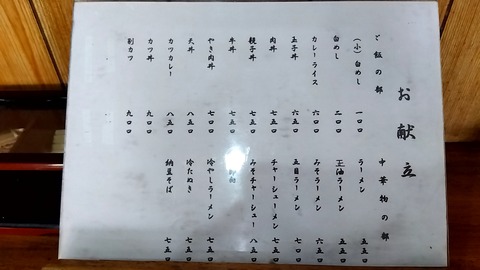 お献立
ご飯の部
(小)白めし 一〇〇
白めし 二〇〇
カレーライス 六〇〇
玉子丼 六五〇
肉丼 七五〇
親子丼 七五〇
牛丼 七五〇
やき肉丼 七〇〇
天丼 八五〇
カツカレー 八五〇
カツ丼 九〇〇
別カツ 九〇〇
中華物の部
ラーメン 五五〇
正油ラーメン 五五〇
みそラーメン 六五〇
五目ラーメン 七〇〇
チャーシューメン 七五〇
みそチャーシュー 八五〇
冷やしラーメン 七五〇
冷たぬき 七五〇
納豆そば 七五〇